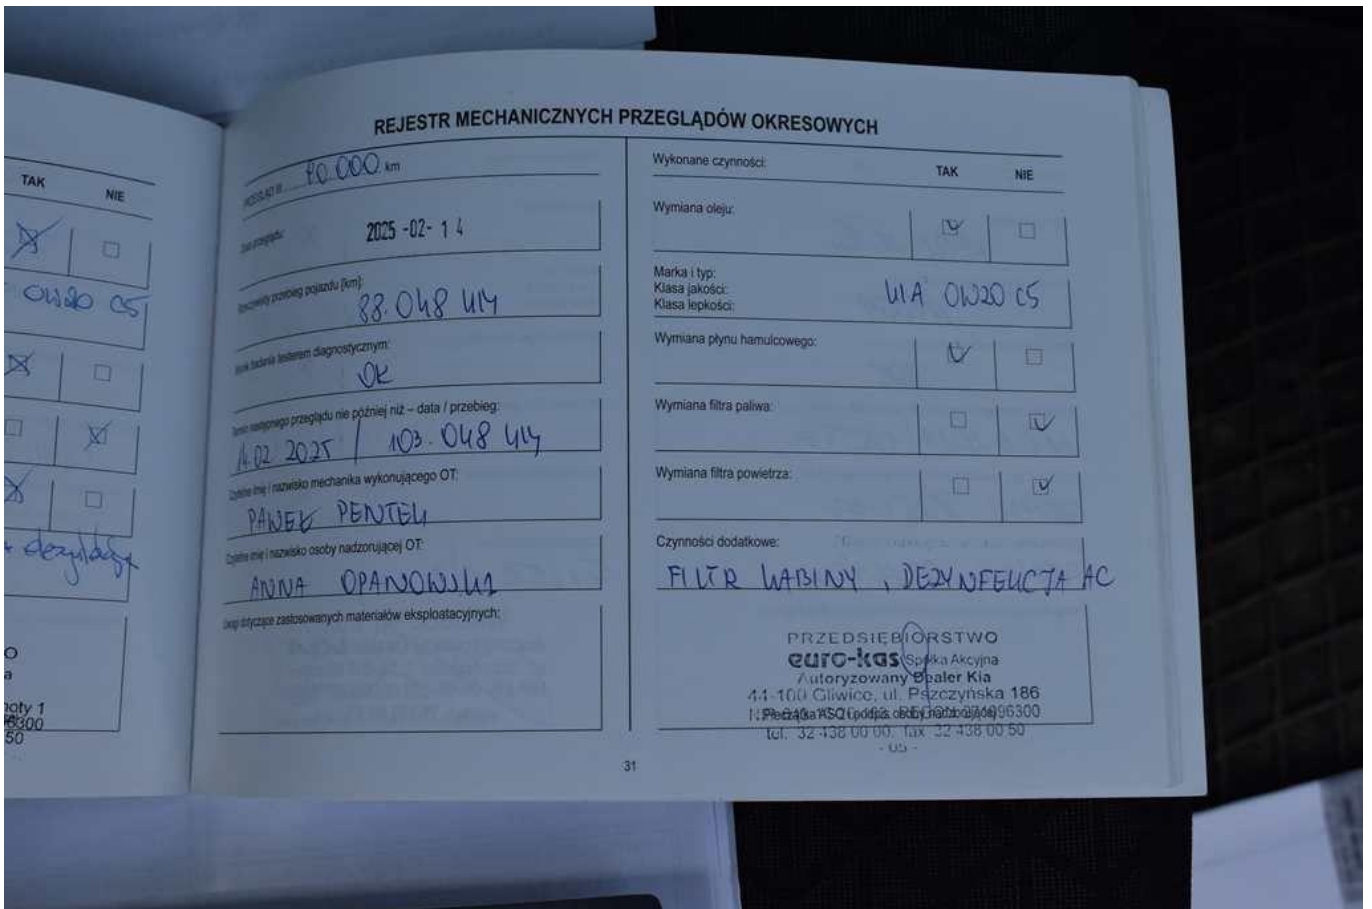 TAK
NIE
0W20 C5
+ dezynfekcja
noty 1
6300
50
REJESTR MECHANICZNYCH PRZEGLĄDÓW OKRESOWYCH
PRZEGLĄD III 90.000 km
Data przeglądu:
2025-02-14
Rzeczywisty przebieg pojazdu [km]:
88.048 KM
Wynik badania testerem diagnostycznym:
OK
Termin następnego przeglądu nie później niż – data / przebieg:
14.02 2025 / 103.048 KM
Czytelne imię i nazwisko mechanika wykonującego OT:
PAWEŁ PENTEK
Czytelne imię i nazwisko osoby nadzorującej OT:
ANNA OPANOWSKA
Uwagi dotyczące zastosowanych materiałów eksploatacyjnych:
Wykonane czynności:
TAK
NIE
Wymiana oleju:
Marka i typ:
Klasa jakości:
Klasa lepkości:
KIA 0W20 C5
Wymiana płynu hamulcowego:
Wymiana filtra paliwa:
Wymiana filtra powietrza:
Czynności dodatkowe:
FILTR KABINY, DEZYNFEKCJA AC
PRZEDSIĘBIORSTWO
euro-kas Spółka Akcyjna
Autoryzowany Dealer Kia
44-100 Gliwice, ul. Pszczyńska 186
Pieczątka ASO i podpis osoby nadzorującej
tel. 32 438 00 00, fax 32 438 00 50
- 05 -
31